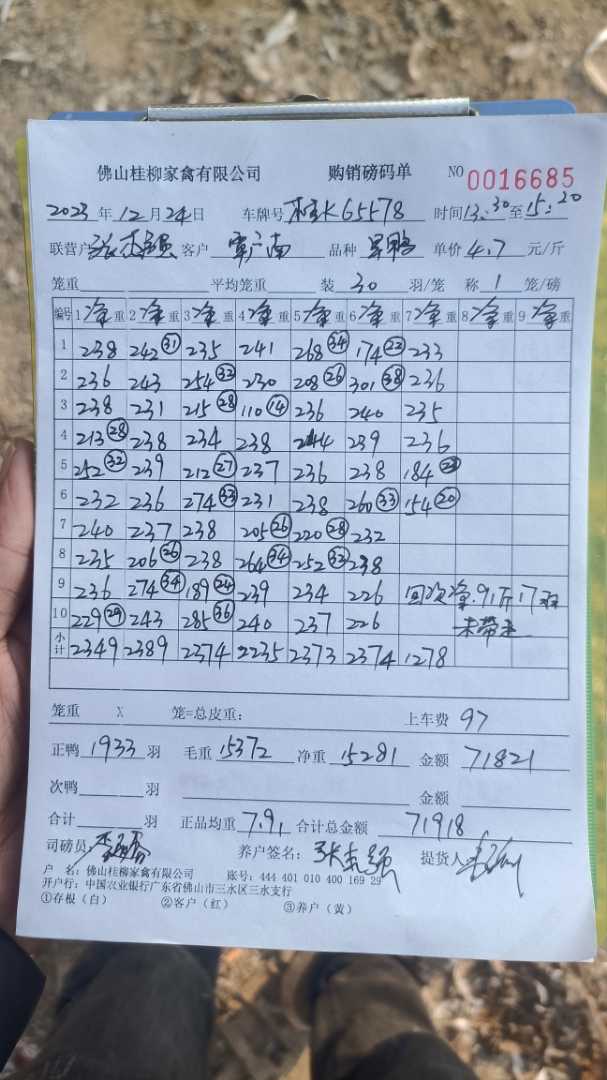 佛山桂柳家禽有限公司 购销磅码单 NO 0016685
2023年12月24日 车牌号 65178 时间13:30至15:20
联营户 客户 覃广南 品种 单价4.7元/斤
笼重 平均笼重 装30羽/笼 称1笼/磅
编号 1净重 2净重 3净重 4净重 5净重 6净重 7净重 8净重 9净重
1 238 242(31) 235 241 268(34) 174(22) 233
2 236 243 254(32) 230 208(26) 301(38) 236
3 238 231 215(28) 110(14) 236 240 235
4 213(28) 238 234 238 244 239 236
5 252(32) 239 212(27) 237 236 238 184
6 232 236 274(33) 231 238 260(33) 154(20)
7 240 237 238 205(26) 220(28) 232
8 235 206(26) 238 264(34) 252(32) 238
9 236 274(34) 189(24) 239 234 226 回次净:91斤17羽
10 229(29) 243 285(36) 240 237 226 未带走
小计 2349 2389 2374 2235 2373 2374 1278
笼重 X 笼=总皮重: 上车费 97
正鸭1933羽 毛重15372 净重15281 金额71821
次鸭 羽 金额
合计 羽 正品均重7.91 合计总金额71918
司磅员 养户签名: 张志强 提货人
户 名: 佛山桂柳家禽有限公司 账号: 444 401 010 400 169 29
开户行: 中国农业银行广东省佛山市三水区三水支行
①存根(白) ②客户(红) ③养户(黄)